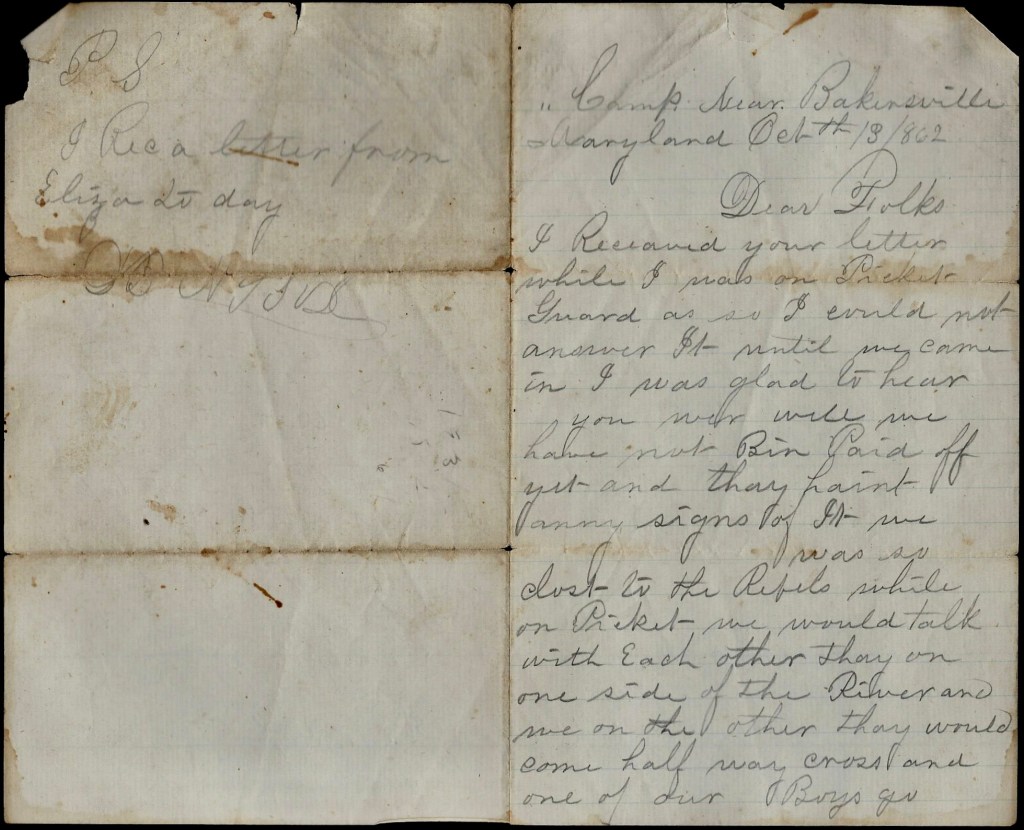 P. S
I Rec a letter from
Eliza to day
" Camp Near Bakersville
Maryland Octth 13/862
Dear Folks
I Receaved your letter
while I was on Picket
Guard as so I could not
answer It until we came
in I was glad to hear
you wer well we
have not Bin Paid off
yet and thay haint
anny signs of It we
was so
clost to the Rebels while
on Picket we would talk
with Each other thay on
one side of the River and
we on the other thay would
come half way cross and
one of our Boys go